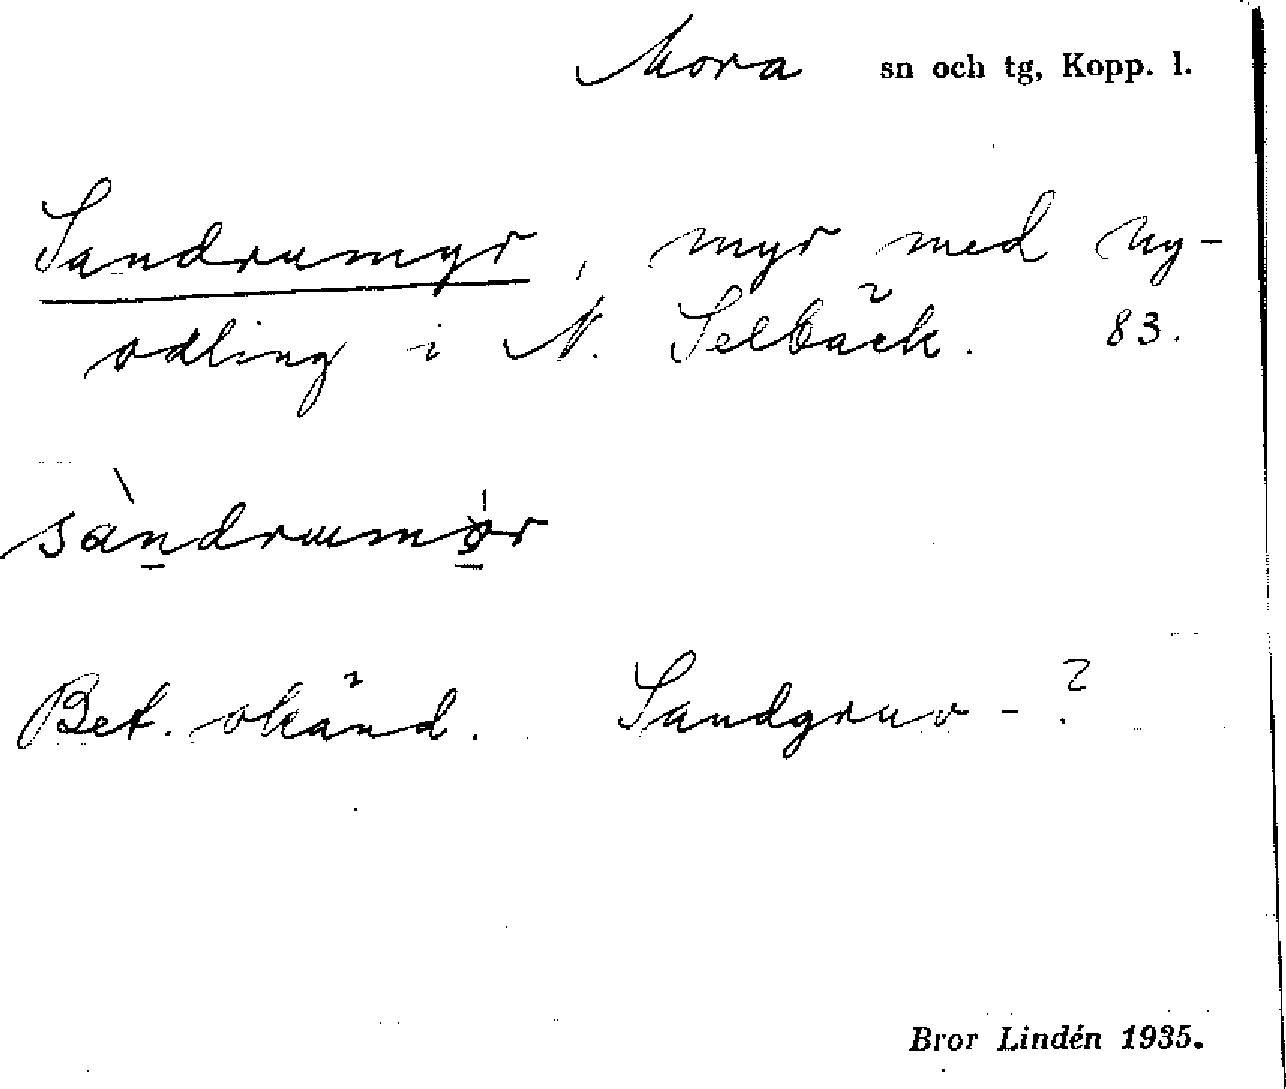 Mora sn och tg, Kopp. l.
Sandrumyr, myr med ny-
odling i N. Selbäck. 83.
sàndrumör
Bet. okänd. Sandgruv-?
Bror Lindén 1935.